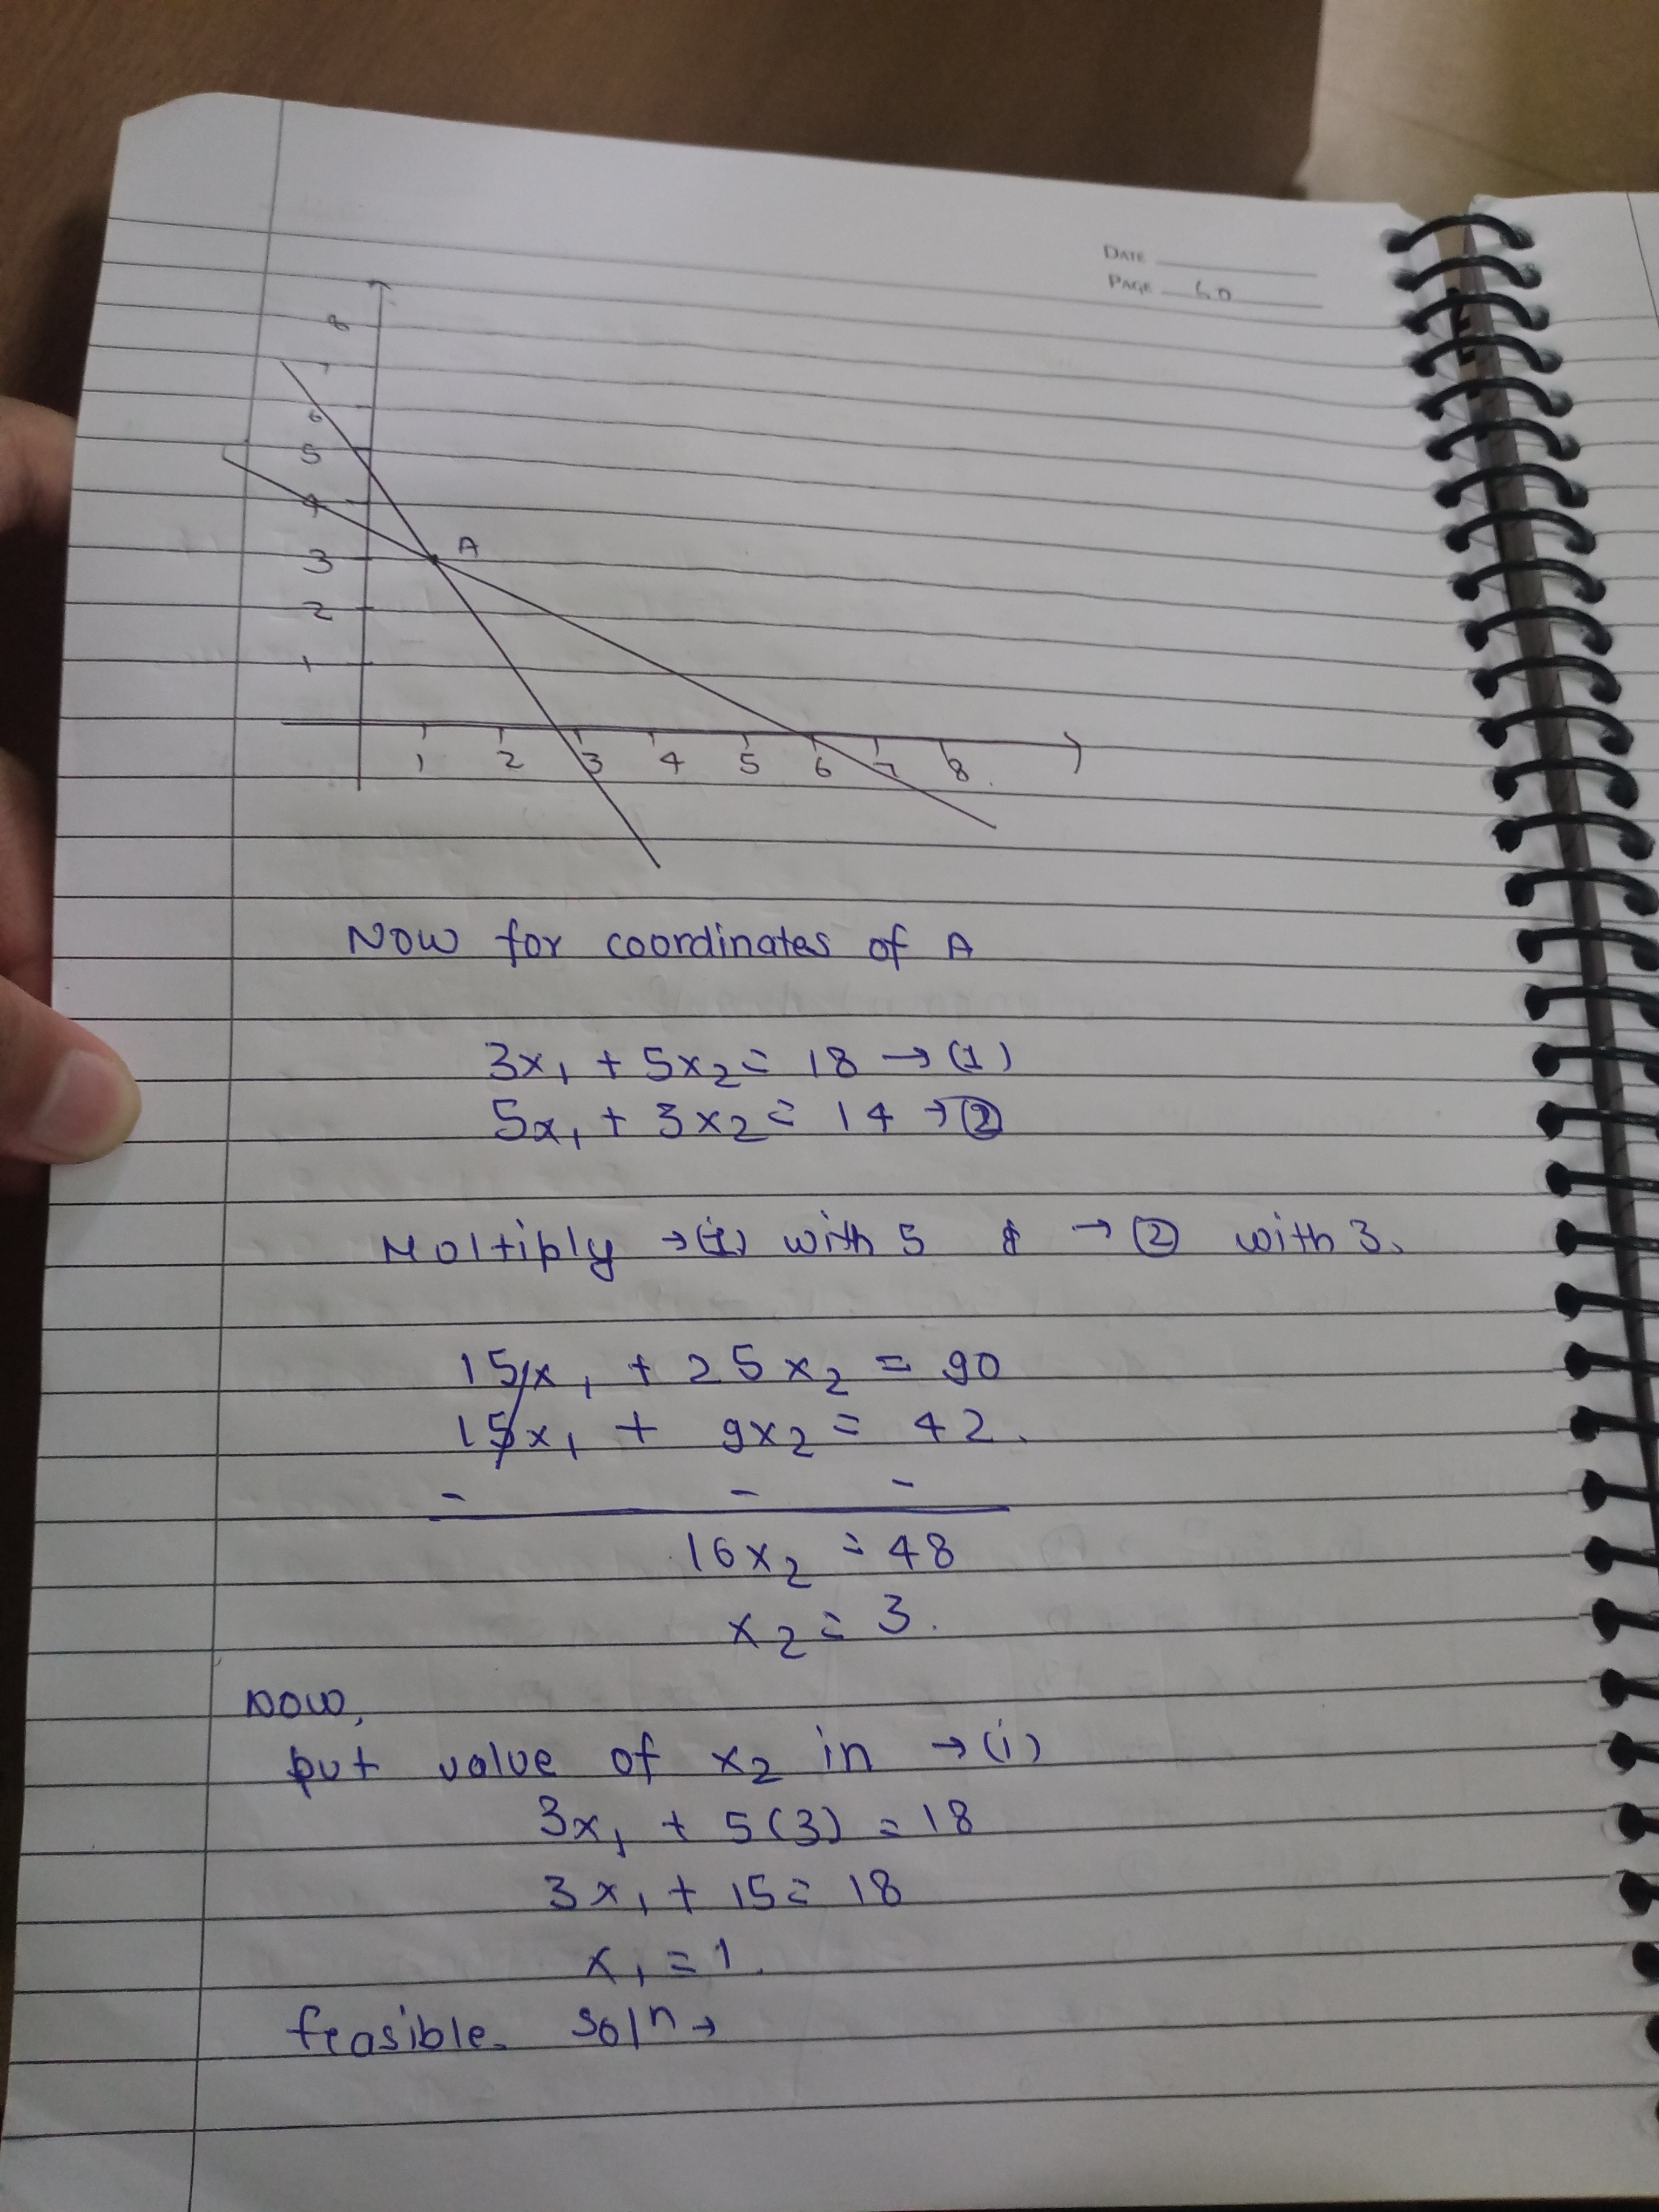 DATE
PAGE 60
8
7
6
5
4
3
2
1
A
1 2 3 4 5 6 7 8
Now for coordinates of A
3x₁ + 5x₂ = 18 → (1)
5x₁ + 3x₂ = 14 → ②
Moltiply → (1) with 5 & → ② with 3.
15x₁ + 25x₂ = 90
15x₁ + 9x₂ = 42.
- - -
16x₂ = 48
x₂ = 3.
Now,
put value of x₂ in → (i)
3x₁ + 5(3) = 18
3x₁ + 15 = 18
x₁ = 1.
feasible. Solⁿ →